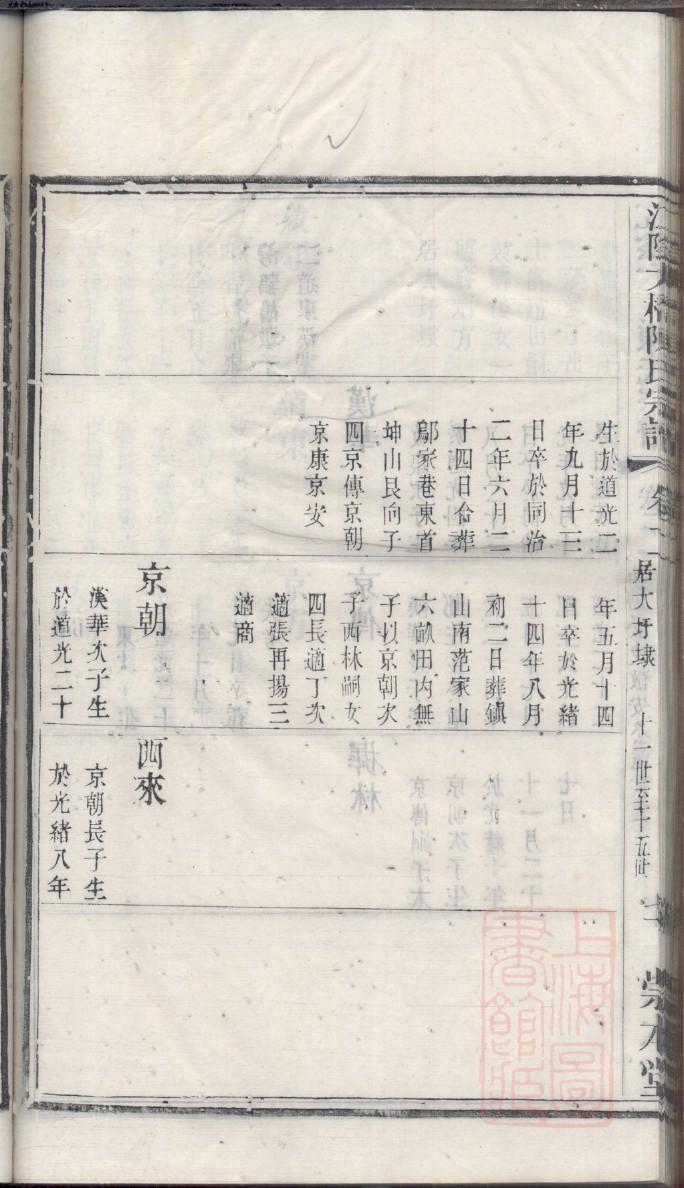 江陰大橋陳氏宗譜
卷十二
居大圩埭
十一世至十五世
崇本堂
生於道光二
年九月十三
日卒於同治
二年六月二
十四日合葬
鄔家巷東首
坤山艮向子
四京傳京朝
京康京安
年五月十四
日卒於光緒
十四年八月
初二日葬鎮
山南范家山
六畝田內無
子以京朝次
子西林嗣女
四長適丁次
適張再揚三
適商
京朝
漢華次子生
於道光二十
西來
京朝長子生
於光緒八年
上海圖
書館藏